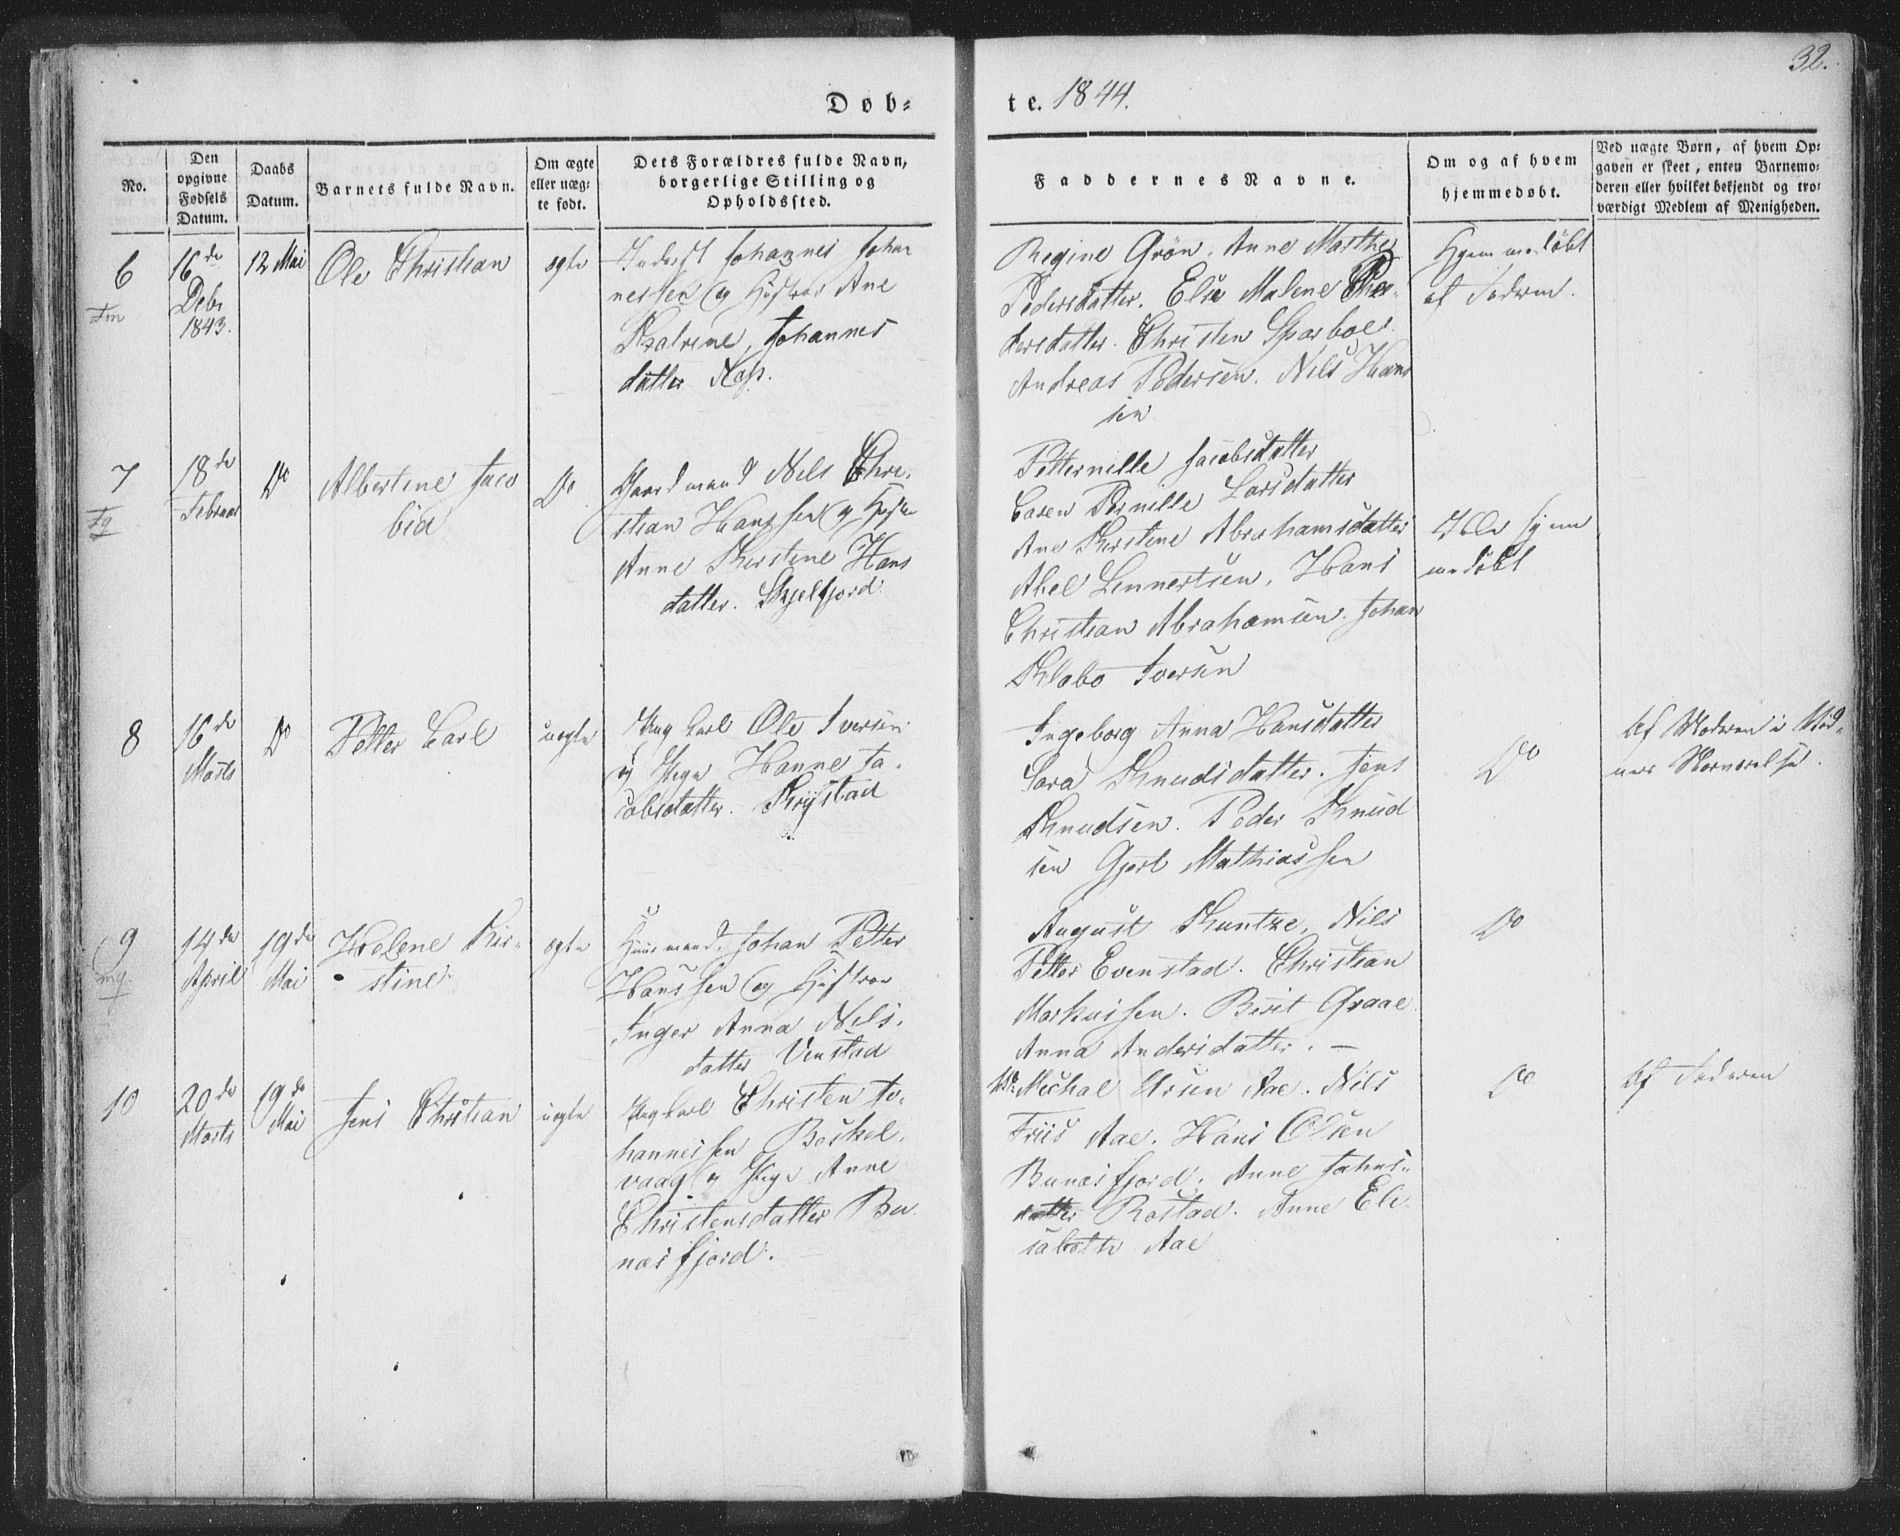 32.
Døb-
te. 1844.
No.
Den opgivne Fødsels Datum.
Daabs Datum.
Barnets fulde Navn.
Om ægte eller uægte født.
Dets Forældres fulde Navn, borgerlige Stilling og Opholdssted.
Faddernes Navne.
Om og af hvem hjemmedøbt.
Ved uægte Børn, af hvem Opgaven er skeet, enten Barnemoderen eller hvilket bekjendt og troværdigt Medlem af Menigheden.
6
16de
Debr
1843.
12 Mai
Ole Christian
ægte
Johannes Johan
nessen og Hustrue Ane
Katrine, Johannes
datter Nap.
Regine Grön, Anne Marthe
Pedersdatter. Else Malene Pe
dersdatter. Christen Sparboe
Andreas Pedersen. Nils Han
sen
Hjemmedöbt
af Faderen.
7
18de
Februar
Do
Albertine Jaco
bia
Do
Gaardmand Nils Chri-
stian Hanssen og Hustrue
Anne Kirstine Hans
datter. Skjelfjord
Petternille Jacobsdatter
Caren Pernille Larsdatter
Ane Kirstine Abrahamsdatter
Abel Lennertsen, Hans
Christian Abrahamsen. Johan
Klabo Iversen
Ikke hjem
medöbt
8
16de
Marts
Do
Petter Carl
uægte
Ung Carl Ole Iversen
og Pige Hanne Ja-
cobsdatter. Krystad
Ingeborg Anna Hansdatter
Sara Knudsdatter. Jens
Knudsen. Peder Knud
sen Gjert Mathiassen
Do
Af Moderen i Vid-
ners Nærværelse.
9
14de
April
19de
Mai
Helene Kir-
stine
ægte
Huusmand. Johan Petter
Hanssen og Hustrue
Inger Anna Nils-
datter Vinstad
August Kuntze, Nils
Petter Evenstad. Christian
Markussen. Berit Graae
Anna Andersdatter. —
Do
10
20de
Marts
19de
Mai
Jens Christian
uægte
Ung Carl Christen Jo-
hannessen Beskel-
vaag og Pige Anne
Christensdatter Bu
næsfjord.
Michal Ursen Aae. Nils
Friis Aae. Hans Olsen
Bunæsfjord. Anne Johns-
datter Rostad. Anne Eli-
sabeth Aae
Do
Af Faderen